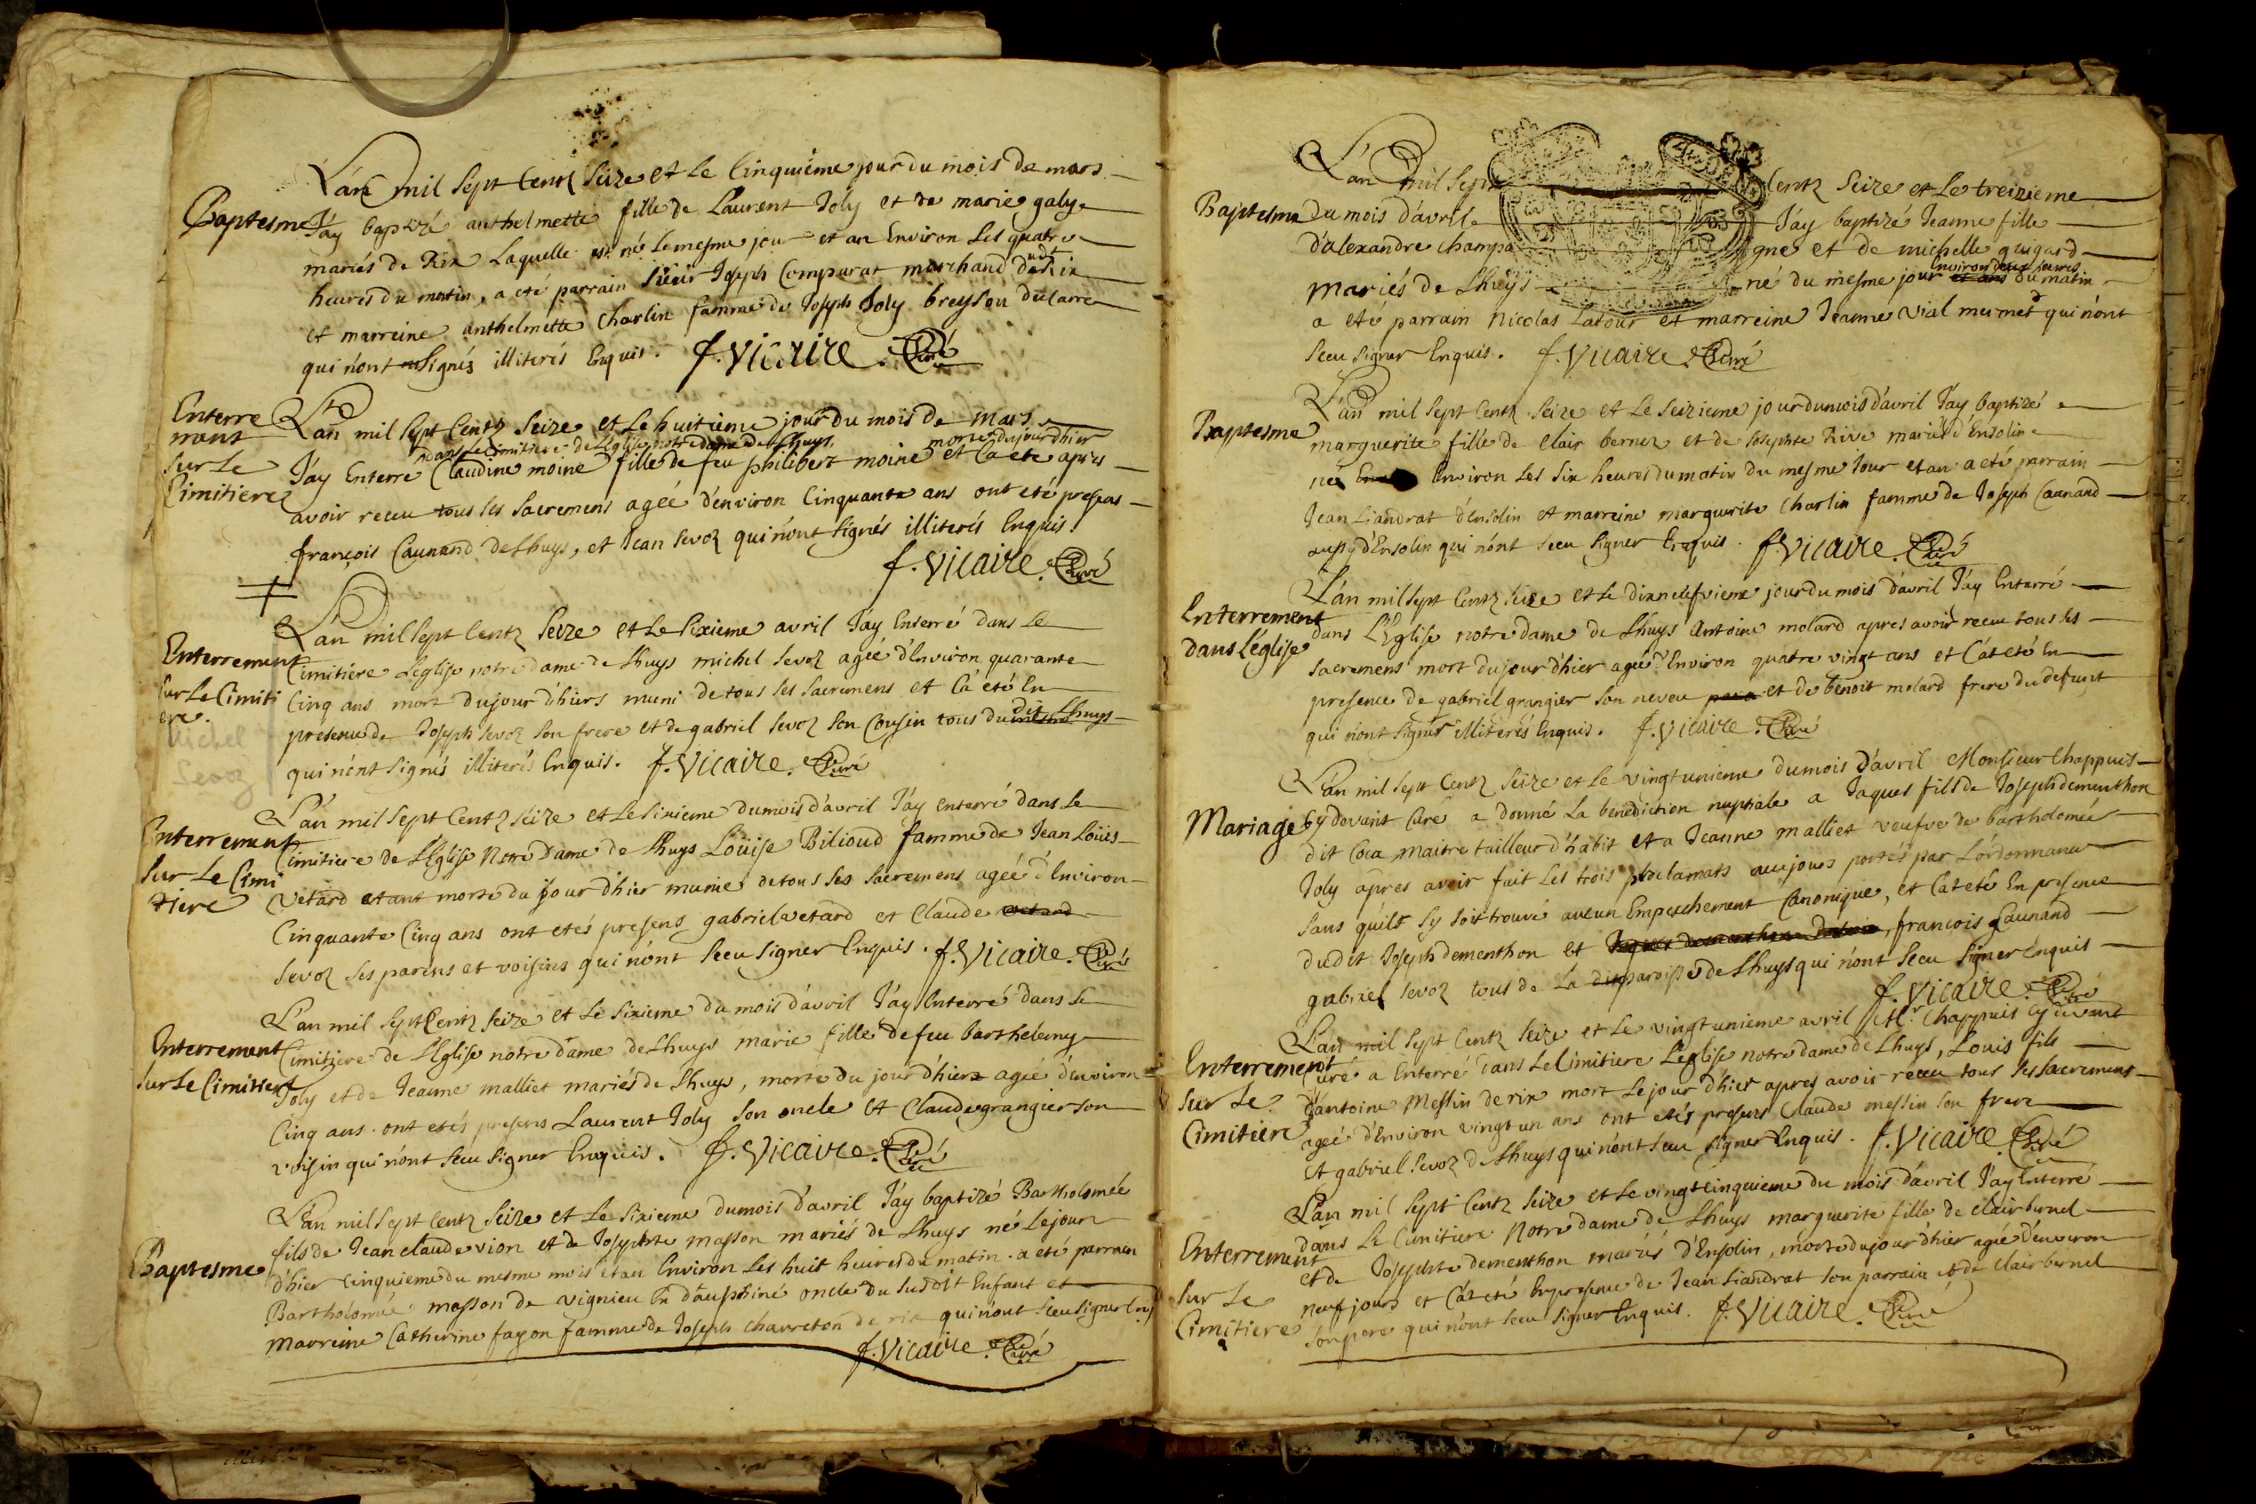 L'an mil sept Centz Seize et Le Cinquième jour du mois de mars
Baptesme
J'ay baptizé anthelmette fille de Laurent Joly et de marie galy
mariés de Rix Laquelle est né le mesme jour et an Environ Les quatre
heures du matin, a eté parrain Sieur Joseph Comparat marchand dudit Rix
et marreine anthelmette Charlin famme de Joseph Joly breyson
qui n'ont Signés illiterés Enquis. f. Vicaire. Curé
Enterre
ment
sur Le
Cimitiere
L'an mil sept Centz Seize et Le huitieme jour du mois de mars
dans Le Cimitiere de L'Eglise notre dame de Lhuys morte du jour d'hier
J'ay Enterré Claudine moine fille de feu philibert moine et Ca eté apres
avoir receu tous les sacremens ageé d'environ Cinquante ans ont eté presens
françois Caunand de Lhuys, et Jean Sevoz qui n'ont Signés illiterés Enquis.
f. Vicaire. Curé
L'an mil sept Centz Seize et Le Sixieme avril J'ay Enterré dans Le
Enterrement
sur Le Cimiti
ere.
Michel
Sevoz
Cimitiere L'eglise notre dame de Lhuys michel Sevoz ageé d'Environ quarante
Cinq ans mort du jour d'hiers muni de tous ses sacremens et Ca eté En
presence de Joseph Sevoz son frere et de gabriel Sevoz son Cousin tous du dit Lhuys
qui n'ont Signés illiterés Enquis. f. Vicaire. Curé
L'an mil sept Centz Seize et Le Sixieme du mois d'avril J'ay enterré dans Le
Enterrement
sur Le Cimi
tiere
Cimitiere de L'Eglise Notre Dame de Lhuys Loüise Bilioud famme de Jean Loüis
Vetard etant morte du jour d'hier munie de tous ses sacremens ageé d'Environ
Cinquante Cinq ans ont etés presens gabriel vetard et Claude vetard
Sevoz ses parens et voisins qui n'ont sceu signer Enquis. f. Vicaire. Curé
L'an mil sept Centz seize et Le sixieme du mois d'avril J'ay Enterré dans Le
Enterrement
sur Le Cimitiere
Cimitiere de L'Eglise notre dame de Lhuys marie fille de feu barthelemy
Joly et de Jeanne malliet mariés de Lhuys, morte du jour d'hier ageé d'environ
Cinq ans. ont etés presens Laurent Joly son oncle et Claude grangier son
voisin qui n'ont sceu signer Enquis. f. Vicaire. Curé
L'an mil sept Centz Seize et Le Sixieme du mois d'avril J'ay baptizé Bartholomée
Baptesme
fils de Jean claude vion et de Josephte masson mariés de Lhuys né Le jour
d'hier cinquieme du mesme mois et an Environ Les huit heures du matin. a eté parrain
Bartholomée masson de vignieu En dauphiné oncle du susdit Enfant et
marreine Catherine fayon famme de Joseph charreton de rix qui n'ont sceu signer Enq.
f. Vicaire. Curé
L'an mil Sept Centz Seize et Le treizieme
Baptesme
du mois d'avril J'ay baptizé Jeanne fille
d'alexandre champagne et de michelle guigard
Environ deux heures
mariés de Lhuys né du mesme jour et an du matin
a eté parrain Nicolas Latour et marreine Jeanne vial qui n'ont
sceu signer Enquis. f. Vicaire. Curé
L'an mil sept Centz Seize et Le Seizieme jour du mois d'avril J'ay baptizé
Baptesme
marguerite fille de Clair bernez et de Josephte Rive mariés d'Ensolin
né Environ Les Six heures du matin du mesme Jour et an a eté parrain
Jean Liandrat d'Ensolin et marreine marguerite Charlin famme de Joseph Caunand
aussy d'Ensolin qui n'ont sceu signer Enquis. f. Vicaire. Curé
L'an mil sept Centz Seize et Le dixneufvieme jour du mois d'avril J'ay Enterré
Enterrement
dans L'église
dans L'Eglise notre dame de Lhuys Antoine molard apres avoir receu tous les
sacremens mort du jour d'hier ageé d'Environ quatre vingt ans et Ca eté En
presence de gabriel grangier son neveu et de benoit molard frere du defunt
qui n'ont Signés illiterés Enquis. f. Vicaire. Curé
L'an mil sept Centz Seize et Le vingtunieme du mois d'avril Monsieur Chappuis
Mariage
Cy devant Curé a donné La benediction nuptiale a Jaques fils de Joseph dementhon
dit Coca maitre tailleur d'habit et a Jeanne malliet veufve de bartholomée
Joly apres avoir fait Les trois proclamats aux jours portés par L'ordonnance
sans qu'il s'y soit trouvé aucun Empeschement Canonique, et Ca eté En presence
du dit Joseph dementhon et françois Caunand
gabriel Sevoz tous de La dit paroisse de Lhuys qui n'ont sceu signer Enquis
f. Vicaire. Curé
L'an mil sept Centz Seize et Le vingtunieme avril Mr. Chappuis Cy devant
Enterrement
sur Le
Cimitiere
Curé a Enterré dans Le Cimitiere L'eglise notre dame de Lhuys, Louis fils
d'antoine Messin de rix mort Le jour d'hier apres avoir receu tous ses sacremens
ageé d'Environ vingt un ans ont etés presens Claude messin son frere
et gabriel Sevoz de Lhuys qui n'ont sceu signer Enquis. f. Vicaire. Curé
L'an mil sept Centz Seize et Le vingtcinquieme du mois d'avril J'ay Enterré
Enterrement
sur Le
Cimitiere
dans Le Cimitiere Notre dame de Lhuys marguerite fille de Clair bernel
et de Josephte dementhon mariés d'Ensolin, morte du jour d'hier ageé d'environ
neuf jours et Ca eté En presence de Jean Liandrat son parrain et de Clair bernel
son pere qui n'ont sceu signer Enquis. f. Vicaire. Curé